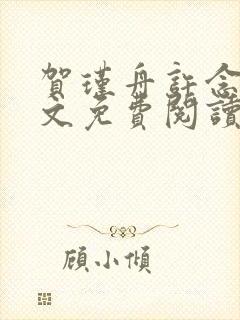 賀瑾舟許念
文免費閱讀
顾小傾